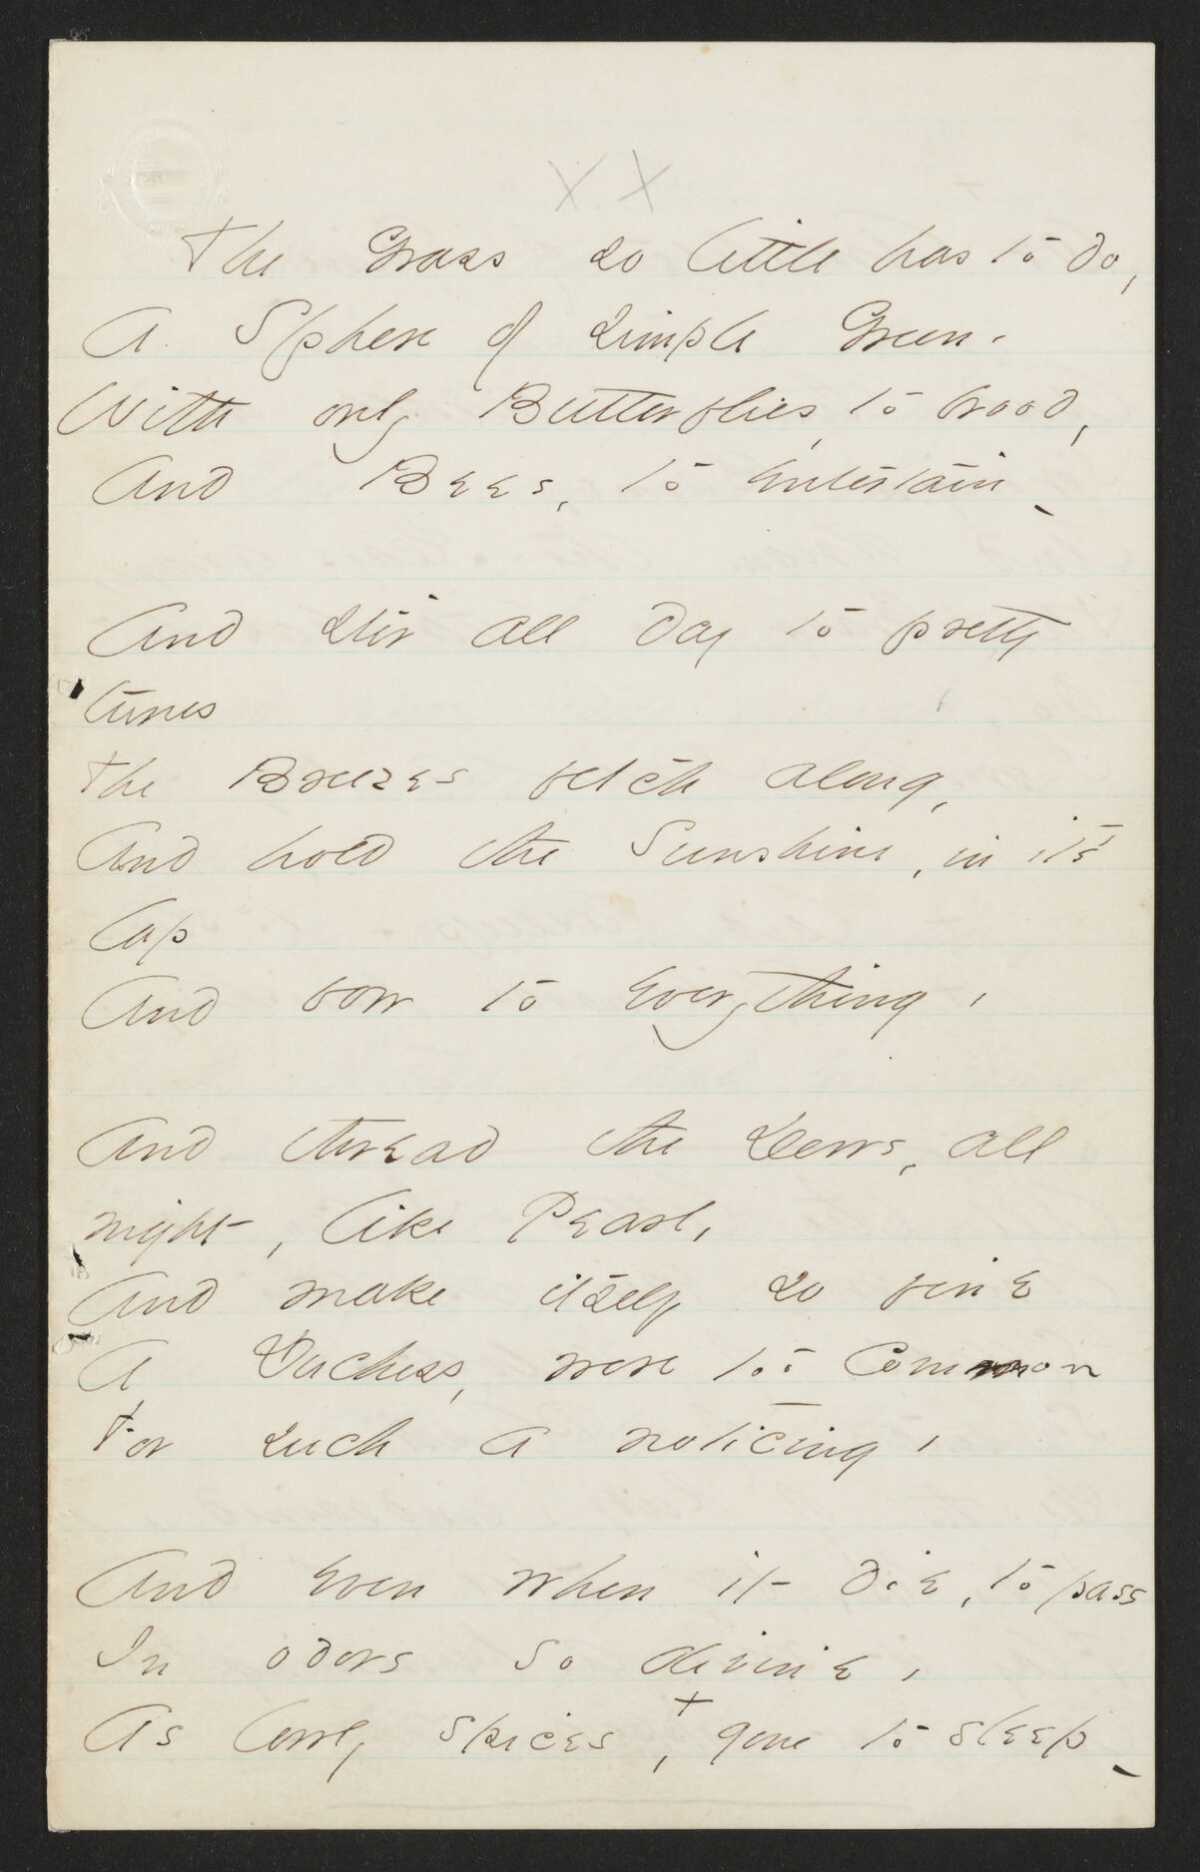 X X
The Grass so little has to do,
A Sphere of simple Green -
With only Butterflies, to brood,
And Bees, to entertain -
And stir all day to pretty
tunes
The Breezes fetch along,
And hold the Sunshine, in it's
lap
And bow to everything,
And thread the Dews, all
night, like Pearl,
And make itself so fine
A Duchess, were too common
For such a noticing,
And even when it die, to pass
In odors so divine,
+
As lowly spices, gone to sleep -